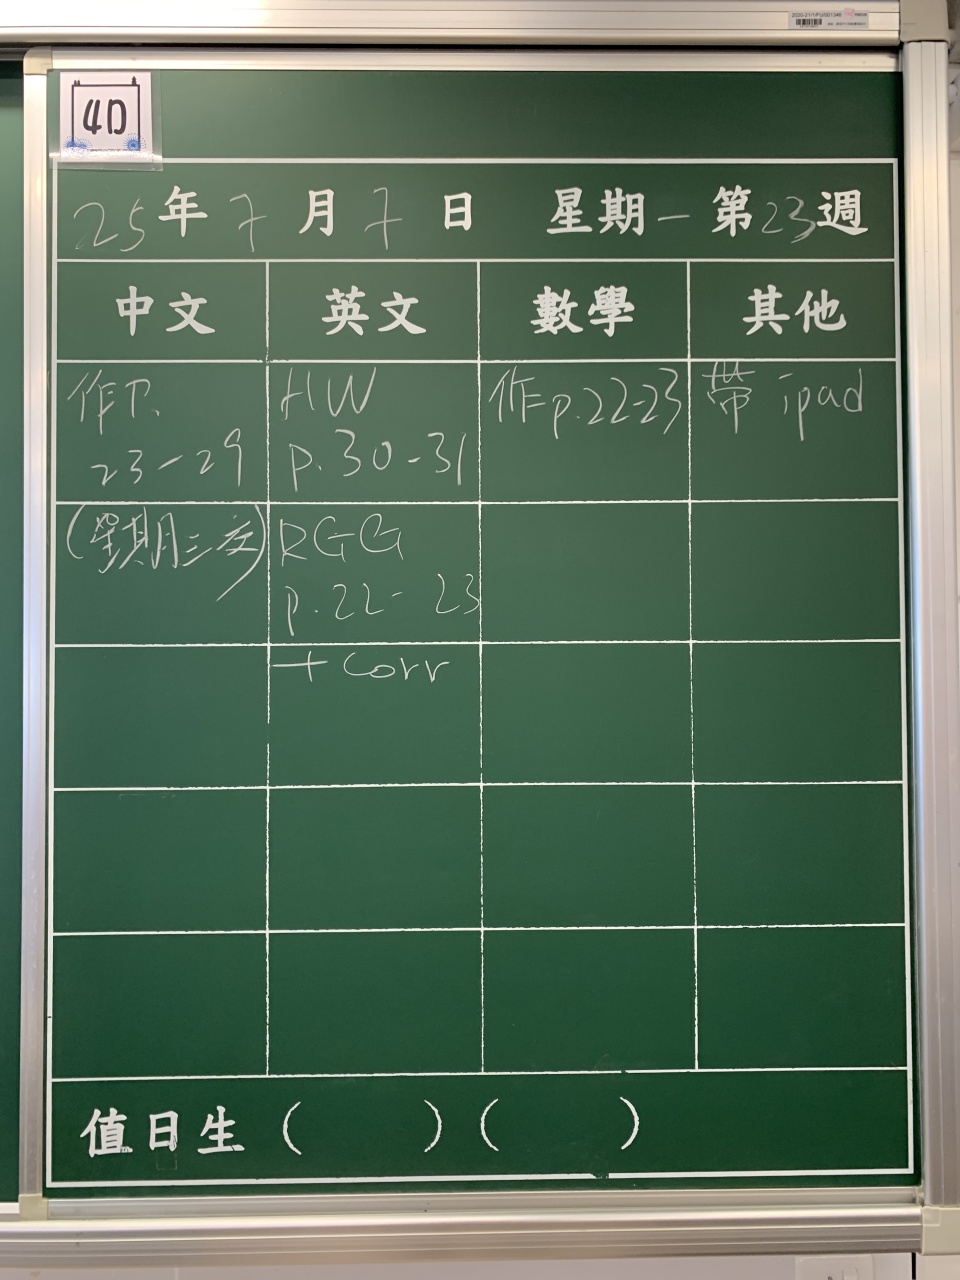 4D
25年7月7日 星期一 第23週
中文 英文 數學 其他
作P.
23-29
HW
p.30-31
作p.22-23
帶 ipad
(星期三交)
RGG
p.22-23
+ corr
值日生 ( ) ( )